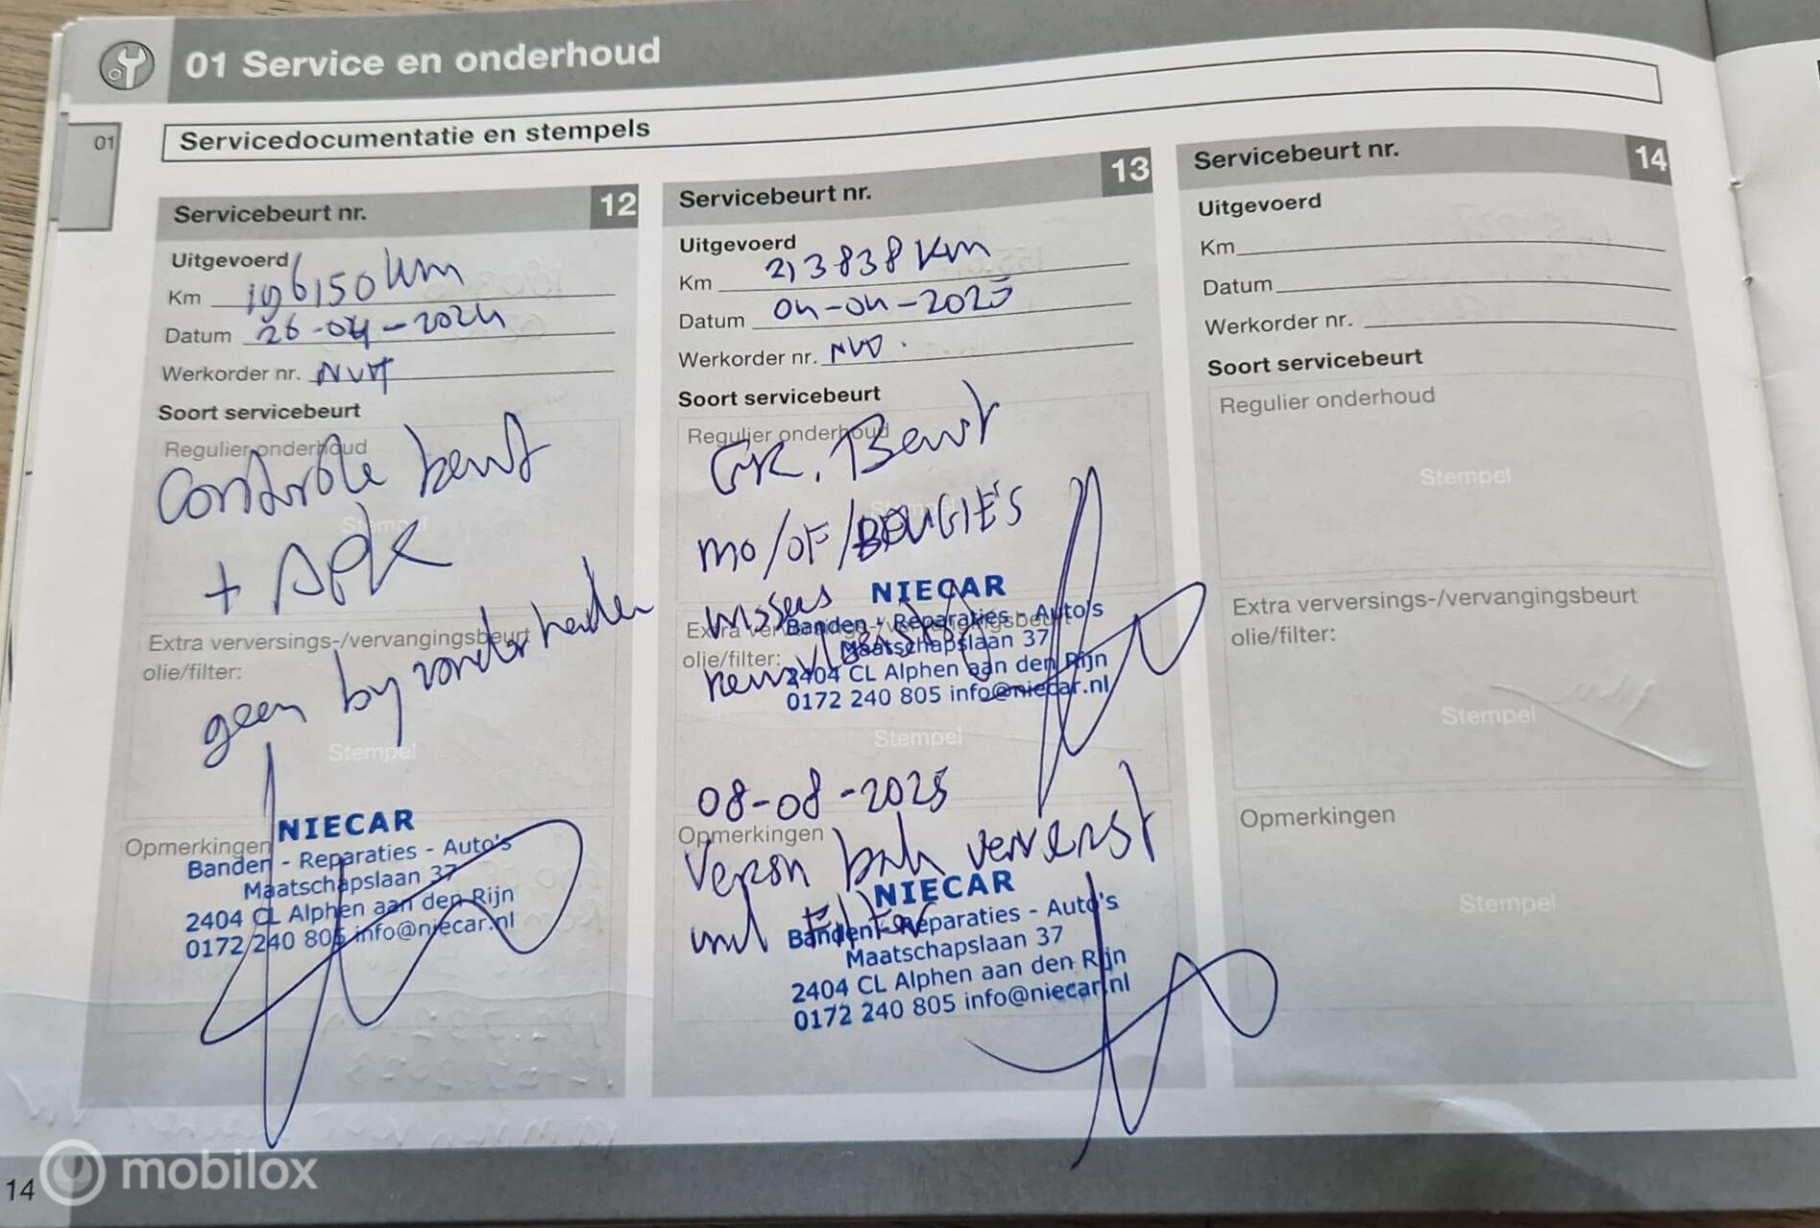 01 Service en onderhoud
01
Servicedocumentatie en stempels
Servicebeurt nr. 12
Uitgevoerd
Km 196150 km
Datum 26-04-2024
Werkorder nr. NVT
Soort servicebeurt
Regulier onderhoud
Controle beurt
Stempel
+ APK
Extra verversings-/vervangingsbeurt
olie/filter:
geen bijzonderheden
Stempel
Opmerkingen
NIECAR
Banden - Reparaties - Auto's
Maatschapslaan 37
2404 CL Alphen aan den Rijn
0172 240 805 info@niecar.nl
Servicebeurt nr. 13
Uitgevoerd
Km 213838 Km
Datum 04-04-2025
Werkorder nr.
Soort servicebeurt
Regulier onderhoud
GR. Beurt
Stempel
mo/OF/BOUGIE'S
NIECAR
Banden - Reparaties - Auto's
Extra verversings-/vervangingsbeurt
Maatschapslaan 37
olie/filter:
2404 CL Alphen aan den Rijn
0172 240 805 info@niecar.nl
Stempel
08-08-2025
Opmerkingen
bak ververst
NIECAR
Banden - Reparaties - Auto's
Filter
Maatschapslaan 37
2404 CL Alphen aan den Rijn
0172 240 805 info@niecar.nl
Servicebeurt nr. 14
Uitgevoerd
Km
Datum
Werkorder nr.
Soort servicebeurt
Regulier onderhoud
Stempel
Extra verversings-/vervangingsbeurt
olie/filter:
Stempel
Opmerkingen
Stempel
14
mobilox